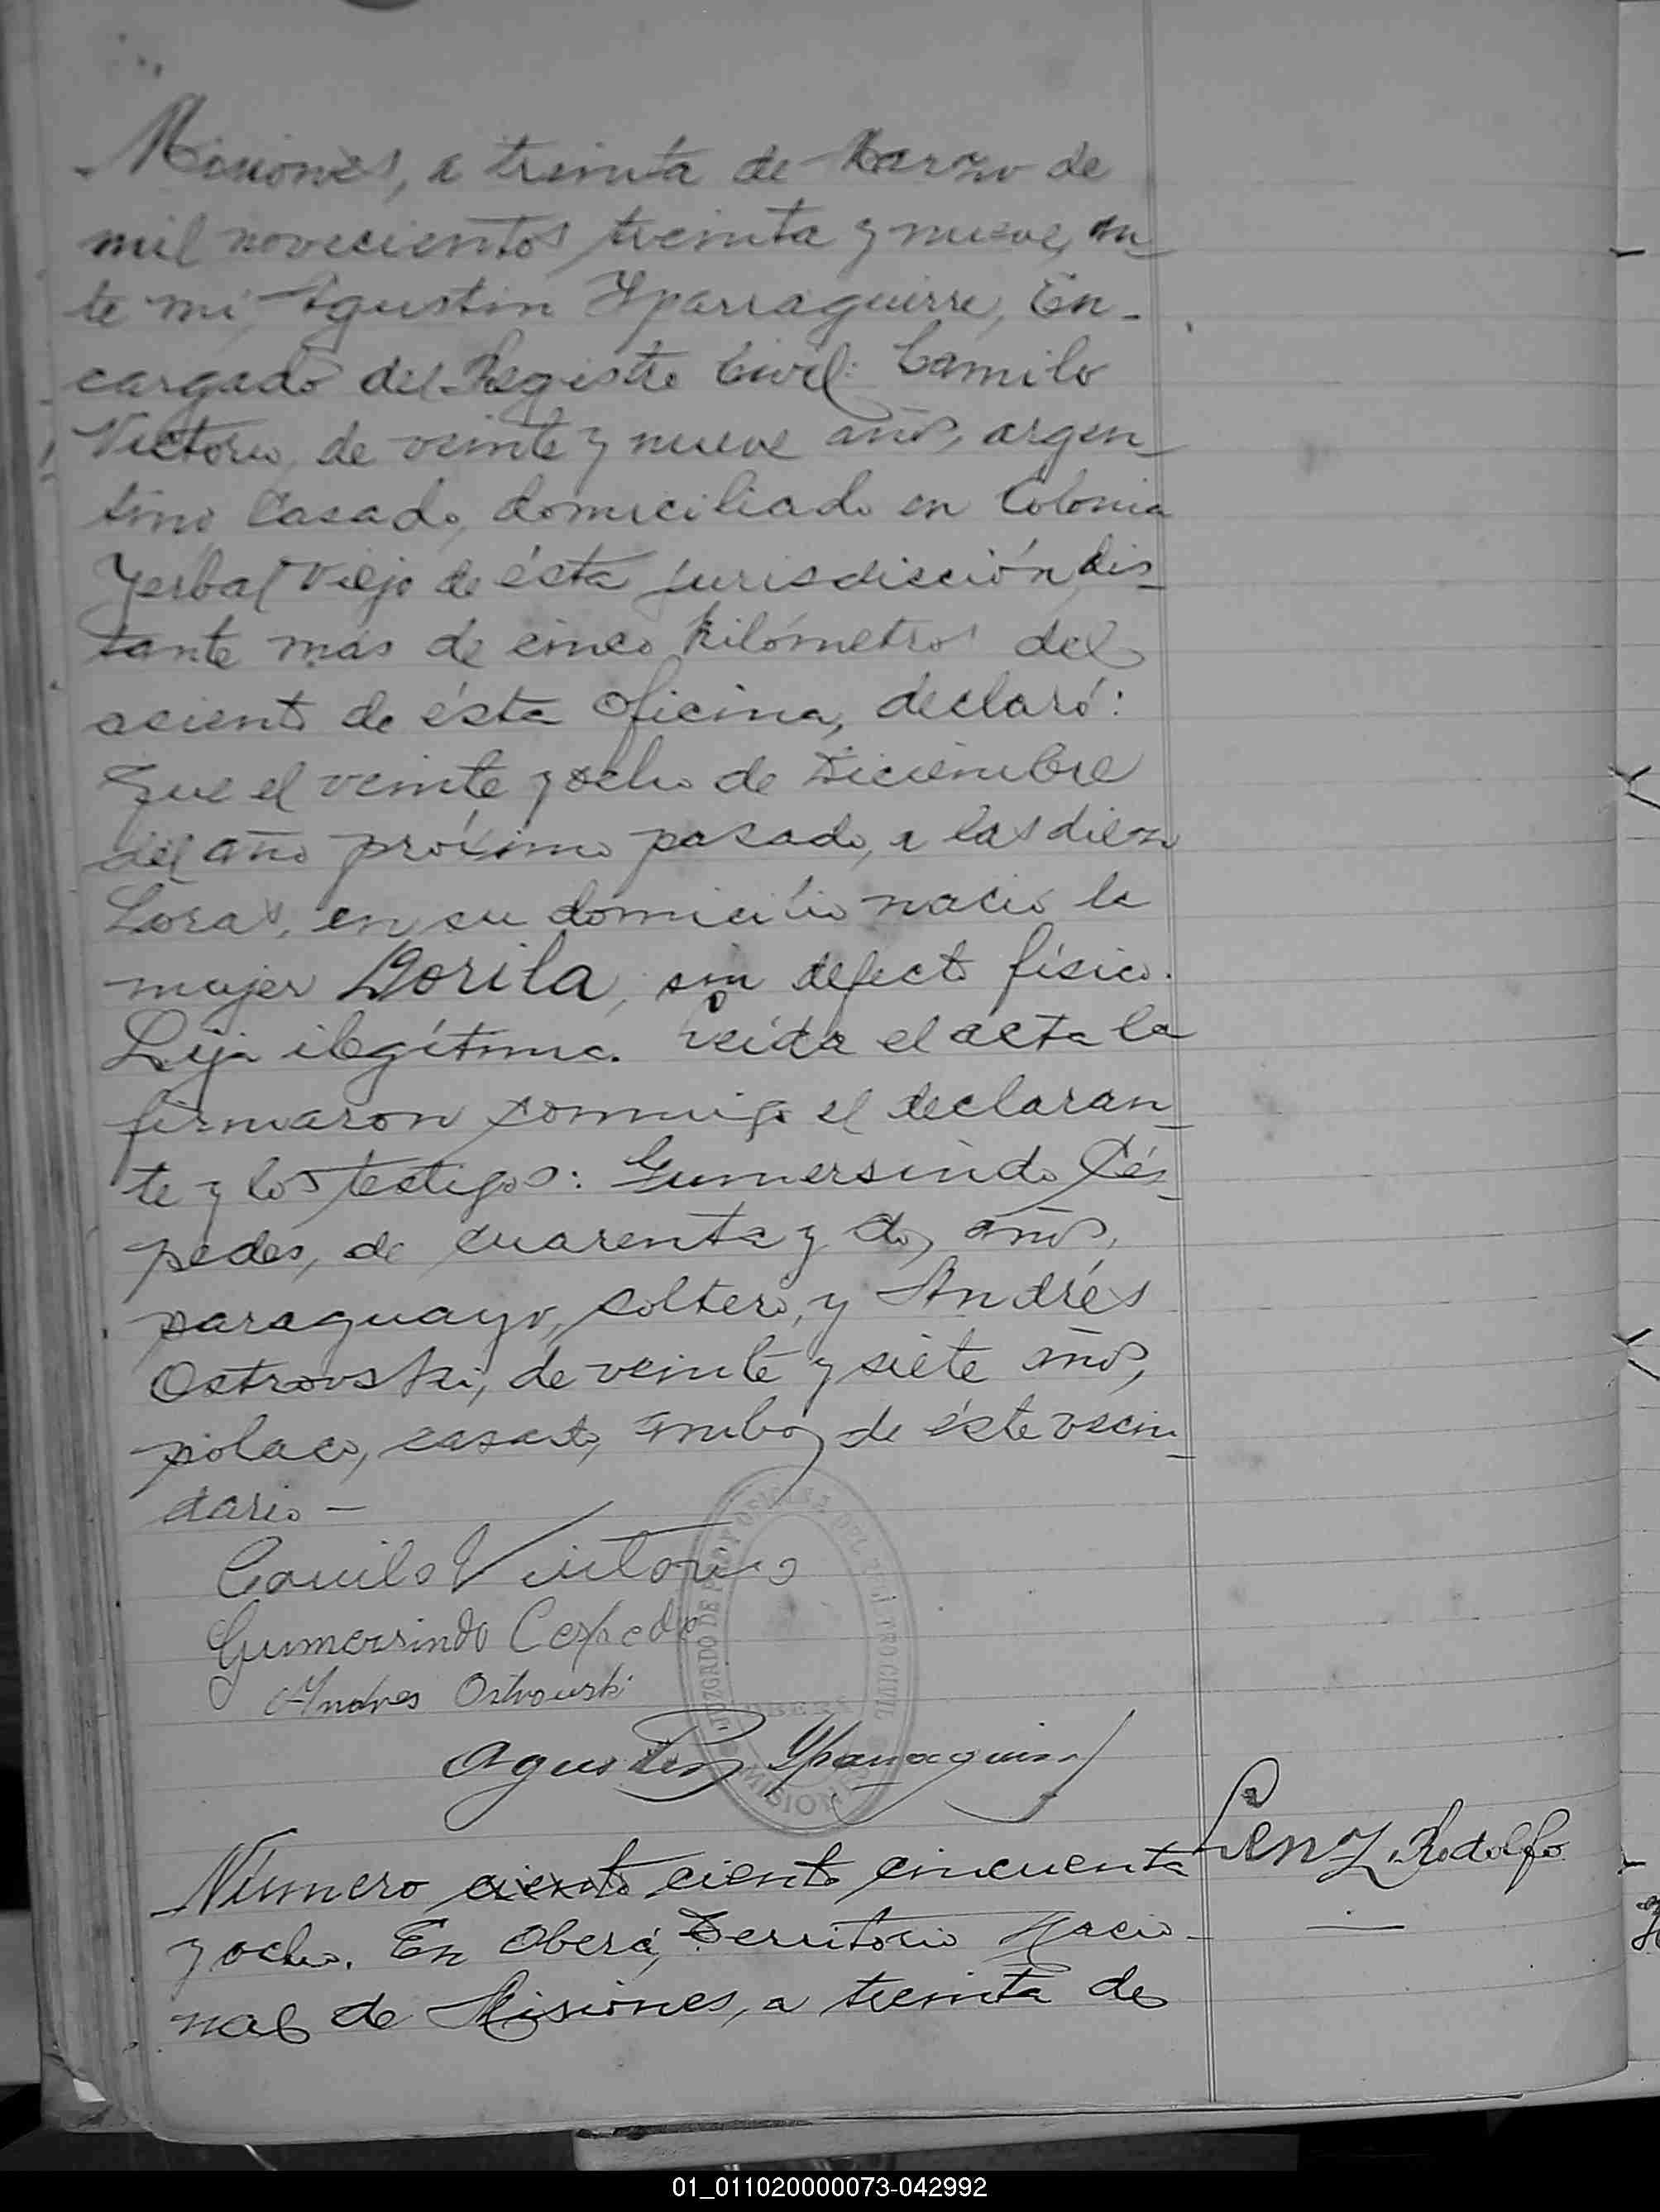 Misiones, a treinta de Marzo de
mil novecientos treinta y nueve, an
te mi, Agustin Yparraguirre, En-
cargado del Registro Civil: Camilo
Victorio, de veinte y nueve años, argen-
tino, casado, domiciliado en Colonia
Yerbal Viejo de ésta jurisdicción, dis-
tante más de cinco kilómetros del
asiento de ésta Oficina, declaró:
Que el veinte y ocho de Diciembre
del año próximo pasado, a las diez
horas, en su domicilio nació la
mujer Dorila, sin defecto físico.
Hija ilegítima. Leida el acta la
firmaron conmigo el declaran-
te y los testigos: Gumersindo Cés-
pedes, de cuarenta y dos años,
paraguayo, soltero, y Andrés
Ostrovski, de veinte y siete años,
polaco, casado, ambos de éste vecin-
dario —
Camilo Victorio
Gumersindo Cespedes
Andres Ostrowski
JUZGADO DE PAZ Y OFICINA DEL REGISTRO CIVIL
OBERÁ
MISIONES
Agustin Yparraguirre
Lenz, Rodolfo
Número ciento ciento cincuenta
y ocho. En Oberá, Territorio Nacio-
nal de Misiones, a treinta de
01_011020000073-042992